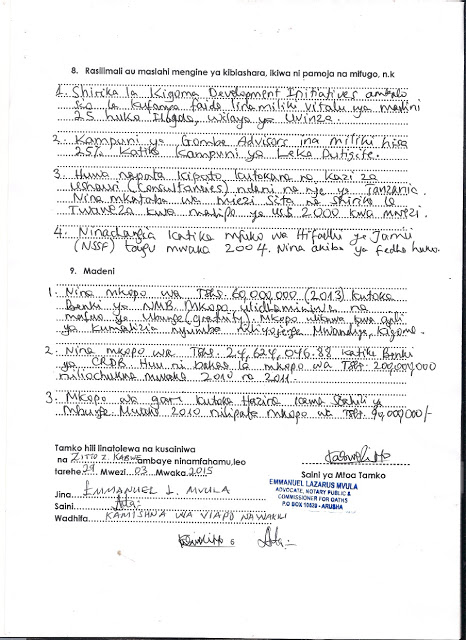 8. Rasilimali au maslahi mengine ya kibiashara, ikiwa ni pamoja na mifugo, n.k
1. Shirika la Kigoma Development Initiatives ambalo
sio la kufanya faida linamiliki vitalu vya madini
25 huko Ilagala, wilaya ya Uvinza.
2. Kampuni ya Gombe Advisors ina miliki hisa
25% katika kampuni ya Leka Dutigite.
3. Huwa napata kipato kutokana na kazi za
ushauri (Consultancies) ndani na nje ya Tanzania.
Nina mkataba wa miezi sita na shirika la
Twaweza kwa malipo ya US$ 2000 kwa mwezi.
4. Ninachangia katika mfuko wa Hifadhi ya Jamii
(NSSF) tangu mwaka 2004. Nina akiba ya fedha huko.
9. Madeni
1. Nina mkopo wa Tshs. 60,000,000 (2013) kutoka
Benki ya NMB. Mkopo ulidhaminiwa na
mafao ya Ubunge (gratuity). Mkopo ulikuwa kwa ajili
ya kumalizia nyumba niliyojenga Mwandiga, Kigoma.
2. Nina mkopo wa Tshs. 24,624,046.88 katika Benki
ya CRDB. Huu ni bakaa la mkopo wa Tshs. 200,000,000
niliochukua mwaka 2010 na 2011.
3. Mkopo wa gari kutoka Hazina kama stahili ya
Mbunge. Mwaka 2010 nilipata mkopo wa Tshs. 90,000,000/-
Tamko hili linatolewa na kusainiwa
na ZITTO Z. KABWE ambaye ninamfahamu, leo
tarehe 29 Mwezi 03 Mwaka 2015
Saini ya Mtoa Tamko
Jina EMMANUEL L. MVULA
Saini
Wadhifa KAMISHNA WA VIAPO NA WAKILI
EMMANUEL LAZARUS MVULA
ADVOCATE, NOTARY PUBLIC &
COMMISSIONER FOR OATHS
P.O BOX 10529 - ARUSHA
6